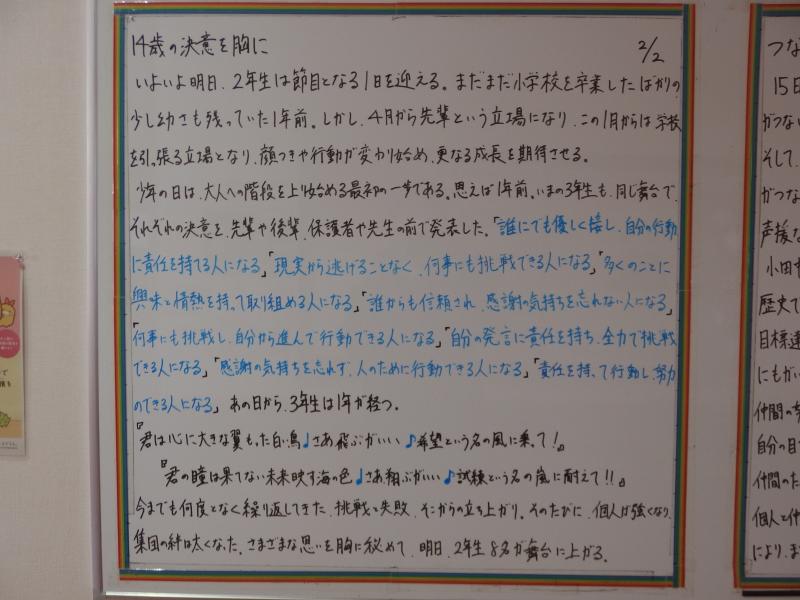 14歳の決意を胸に 2/2
いよいよ明日、2年生は節目となる1日を迎える。まだまだ小学校を卒業したばかりの
少し幼さも残っていた1年前。しかし、4月から先輩という立場になり、この1月からは学校
を引っ張る立場となり、顔つきや行動が変わり始め、更なる成長を期待させる。
少年の日は、大人への階段を上り始める最初の一歩である。思えば1年前。いまの3年生も、同じ舞台で、
それぞれの決意を、先輩や後輩、保護者や先生の前で発表した。「誰にでも優しく接し、自分の行動
に責任を持てる人になる」「現実から逃げることなく、何事にも挑戦できる人になる」「多くのことに
興味と情熱を持って取り組める人になる」「誰からも信頼され、感謝の気持ちを忘れない人になる」
「何事にも挑戦し、自分から進んで行動できる人になる」「自分の発言に責任を持ち、全力で挑戦
できる人になる」「感謝の気持ちを忘れず、人のために行動できる人になる」「責任を持って行動し、努力
のできる人になる」あの日から、3年生は1年が経つ。
『君は心に大きな翼もった白い鳥♪さあ飛ぶがいい♪希望という名の風に乗って!』
『君の瞳は果てない未来映す海の色♪さあ翔ぶがいい♪試練という名の嵐に耐えて!!』
今までも何度となく繰り返してきた、挑戦と失敗、そこからの立ち上がり。そのたびに、個人が強くなり、
集団の絆は太くなった。さまざまな思いを胸に秘めて、明日、2年生8名が舞台に上がる。
つな
15日
がつない
そして、
がつな
声援な
小田
歴史で
目標達
にもがい
仲間の
自分の目
仲間のた
個人と仲
により、ま